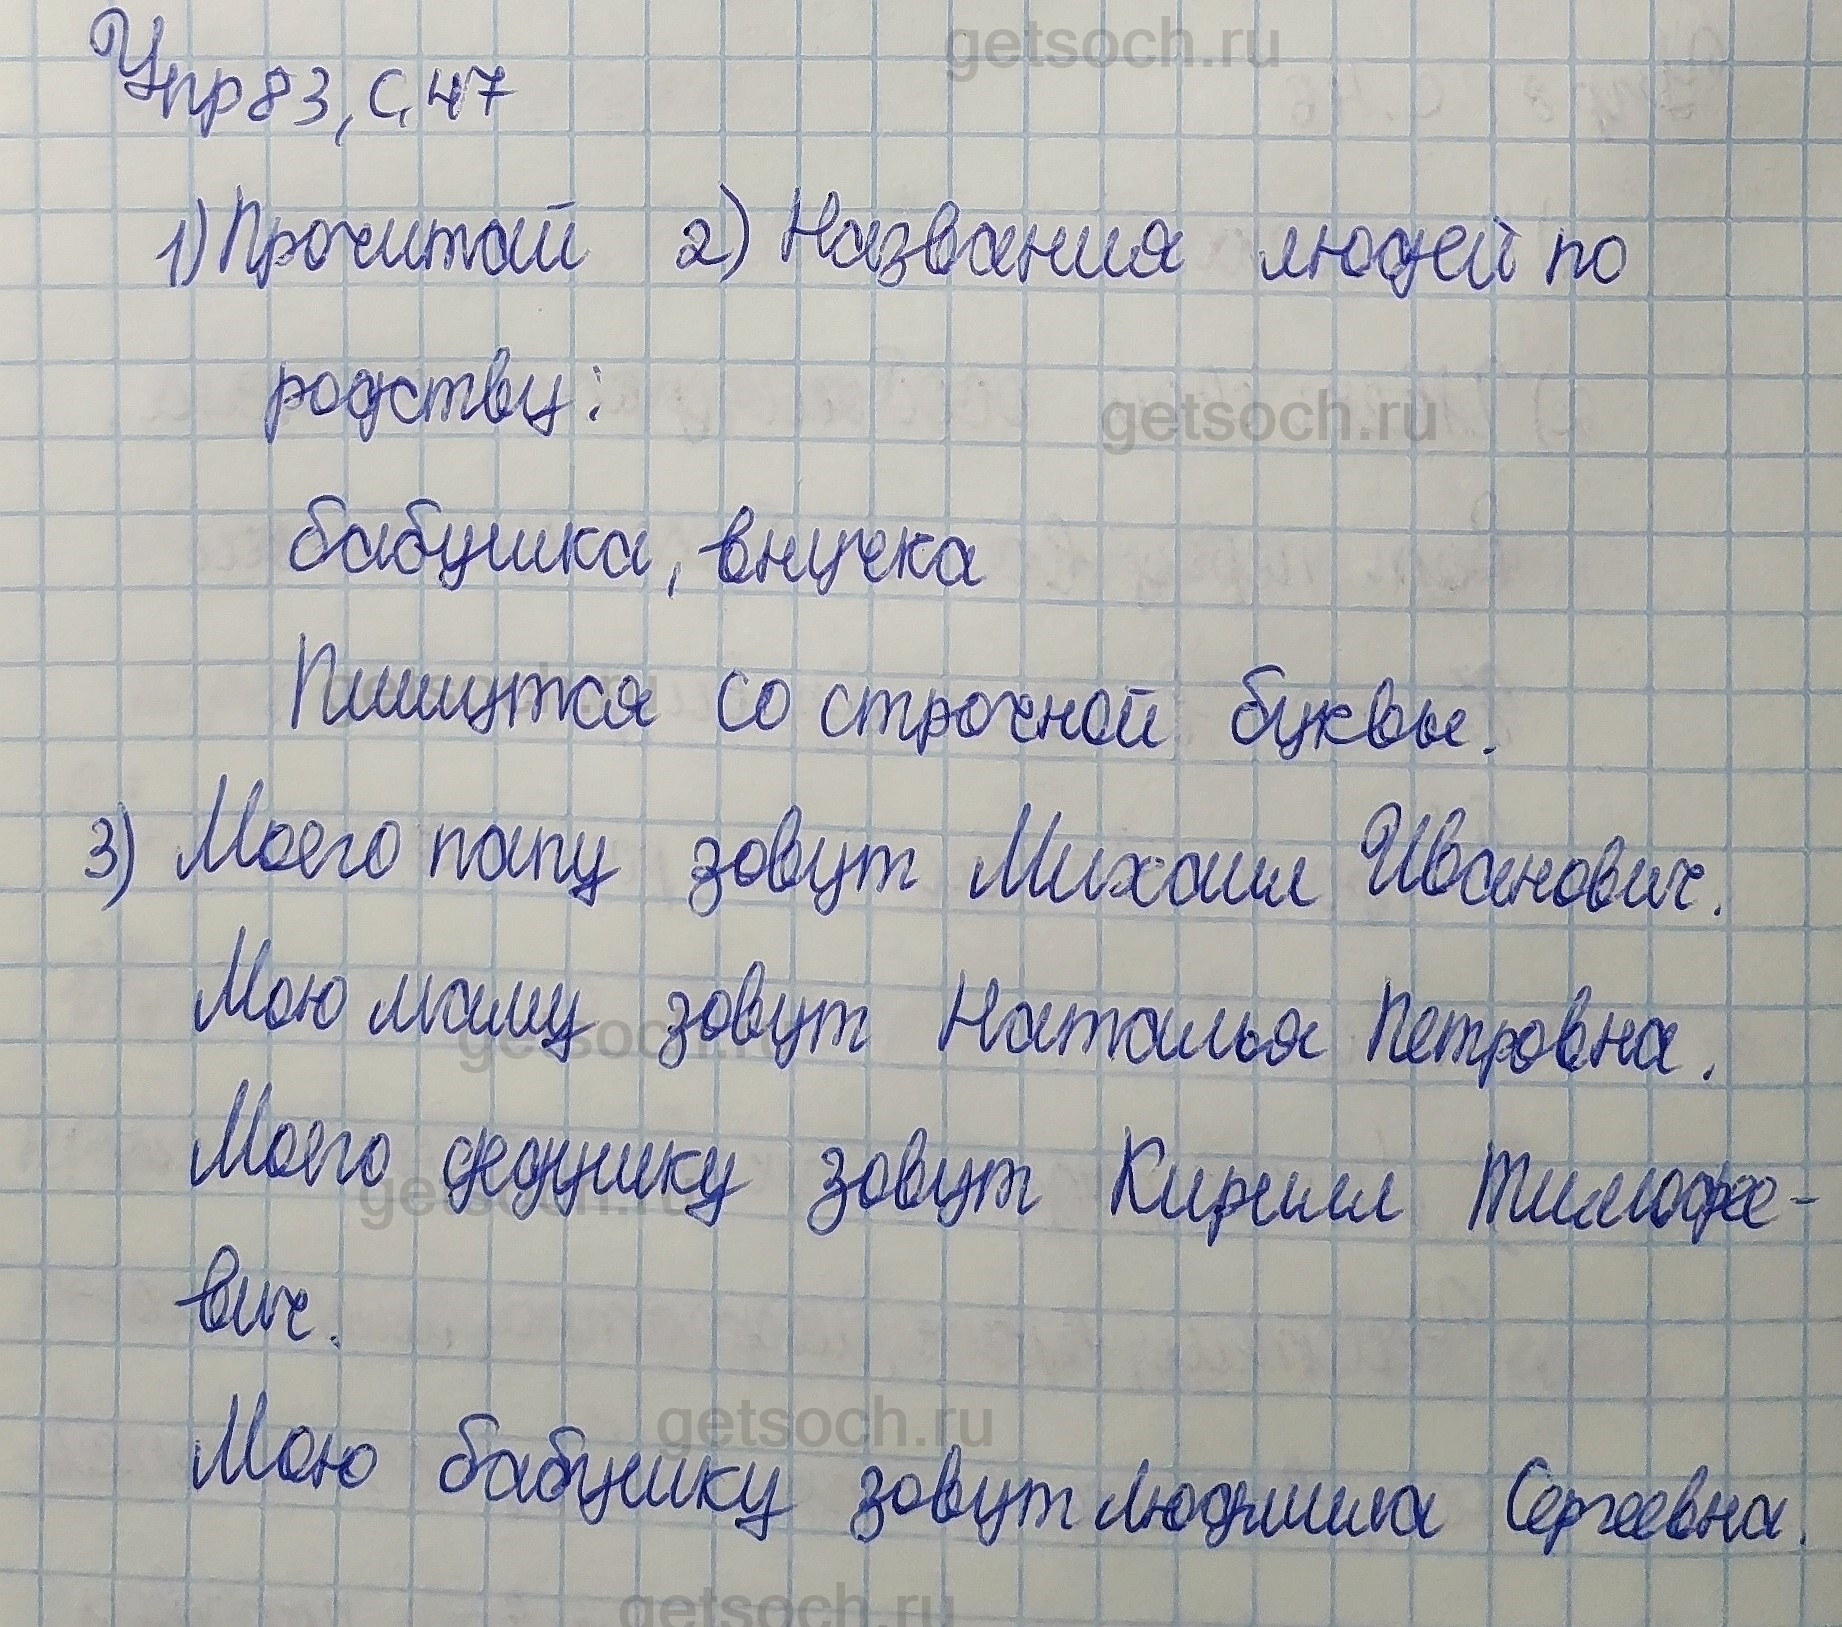 getsoch.ru
Упр 83, с. 47
1) Прочитай 2) Названия людей по
родству:
getsoch.ru
бабушка, внучка
Пишутся со строчной буквы.
3) Моего папу зовут Михаил Иванович.
Мою маму зовут Наталья Петровна.
getsoch.ru
Моего дедушку зовут Кирилл Тимофее-
getsoch.ru
вич.
getsoch.ru
Мою бабушку зовут Людмила Сергеевна.
getsoch.ru